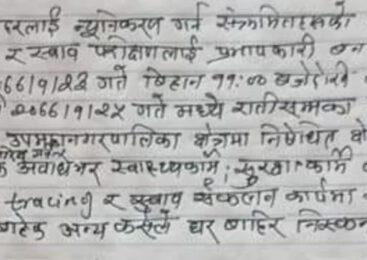 दरलाई न्यूनिकरण गर्न संक्रमितहरुको
र स्वाब परीक्षणलाई प्रभावकारी बन
गते बिहान ११:०० बजेदेखि
गते मध्ये रातीसम्मका
उपमहानगरपालिका क्षेत्रमा निषेधित
अवधिभर स्वास्थ्यकर्मी, सुरक्षाकर्मी
tracing र स्वाब संकलन कार्यमा
अन्य कसैले घर बाहिर निस्कन